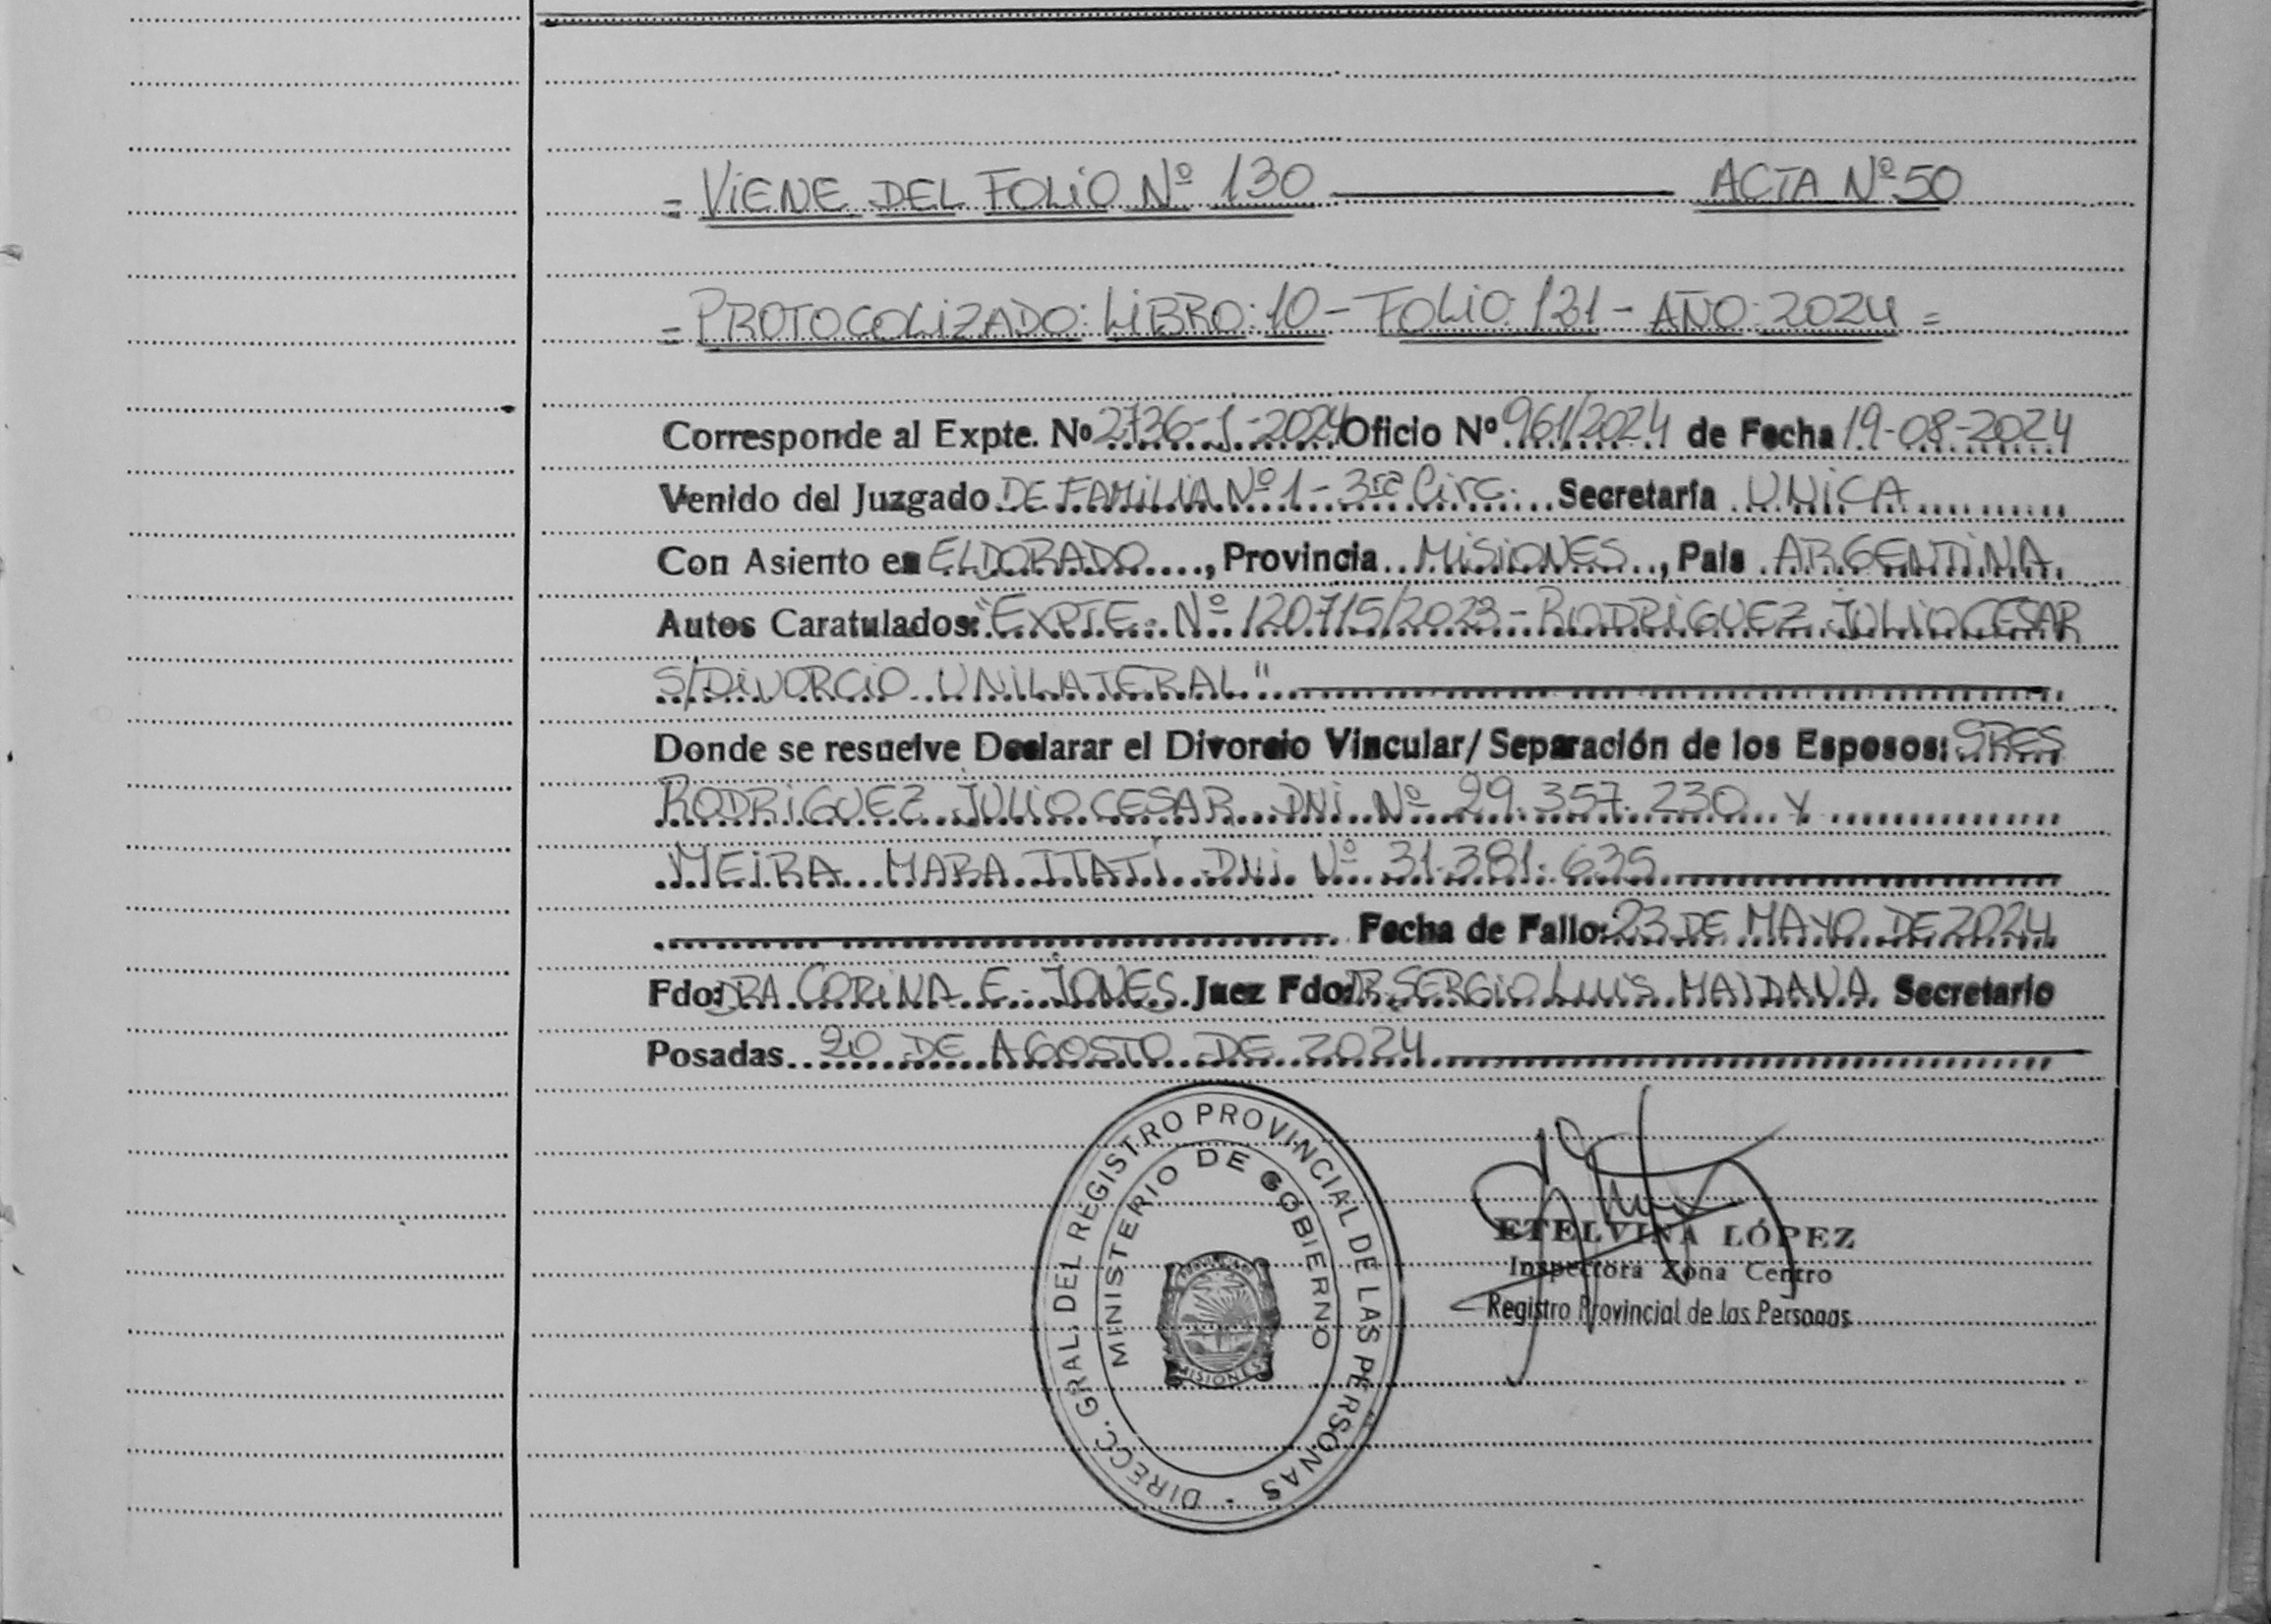 = VIENE DEL FOLIO Nº 130 ACTA Nº 50
= PROTOCOLIZADO: LIBRO: 10 - FOLIO: 121 - AÑO: 2024 =
Corresponde al Expte. Nº 2736-J-2024 Oficio Nº 961/2024 de Fecha 19-08-2024
Venido del Juzgado DE FAMILIA Nº 1 - 3ra Circ. Secretaría UNICA
Con Asiento en ELDORADO, Provincia MISIONES, País ARGENTINA
Autos Caratulados: "EXPTE. Nº 120715/2023 - RODRIGUEZ JULIO CESAR
S/DIVORCIO UNILATERAL"
Donde se resuelve Declarar el Divorcio Vincular/Separación de los Esposos: SRES
RODRIGUEZ JULIO CESAR DNI Nº 29.357.230 Y
MEIRA MARA ITATI DNI Nº 31.381.635
Fecha de Fallo: 23 DE MAYO DE 2024
Fdo: DRA CORINA E. JONES Juez Fdo: DR. SERGIO LUIS MAIDANA Secretario
Posadas 20 DE AGOSTO DE 2024
DIRECC. GRAL. DEL REGISTRO PROVINCIAL DE LAS PERSONAS
MINISTERIO DE GOBIERNO
MISIONES
ETELVINA LÓPEZ
Inspectora Zona Centro
Registro Provincial de las Personas